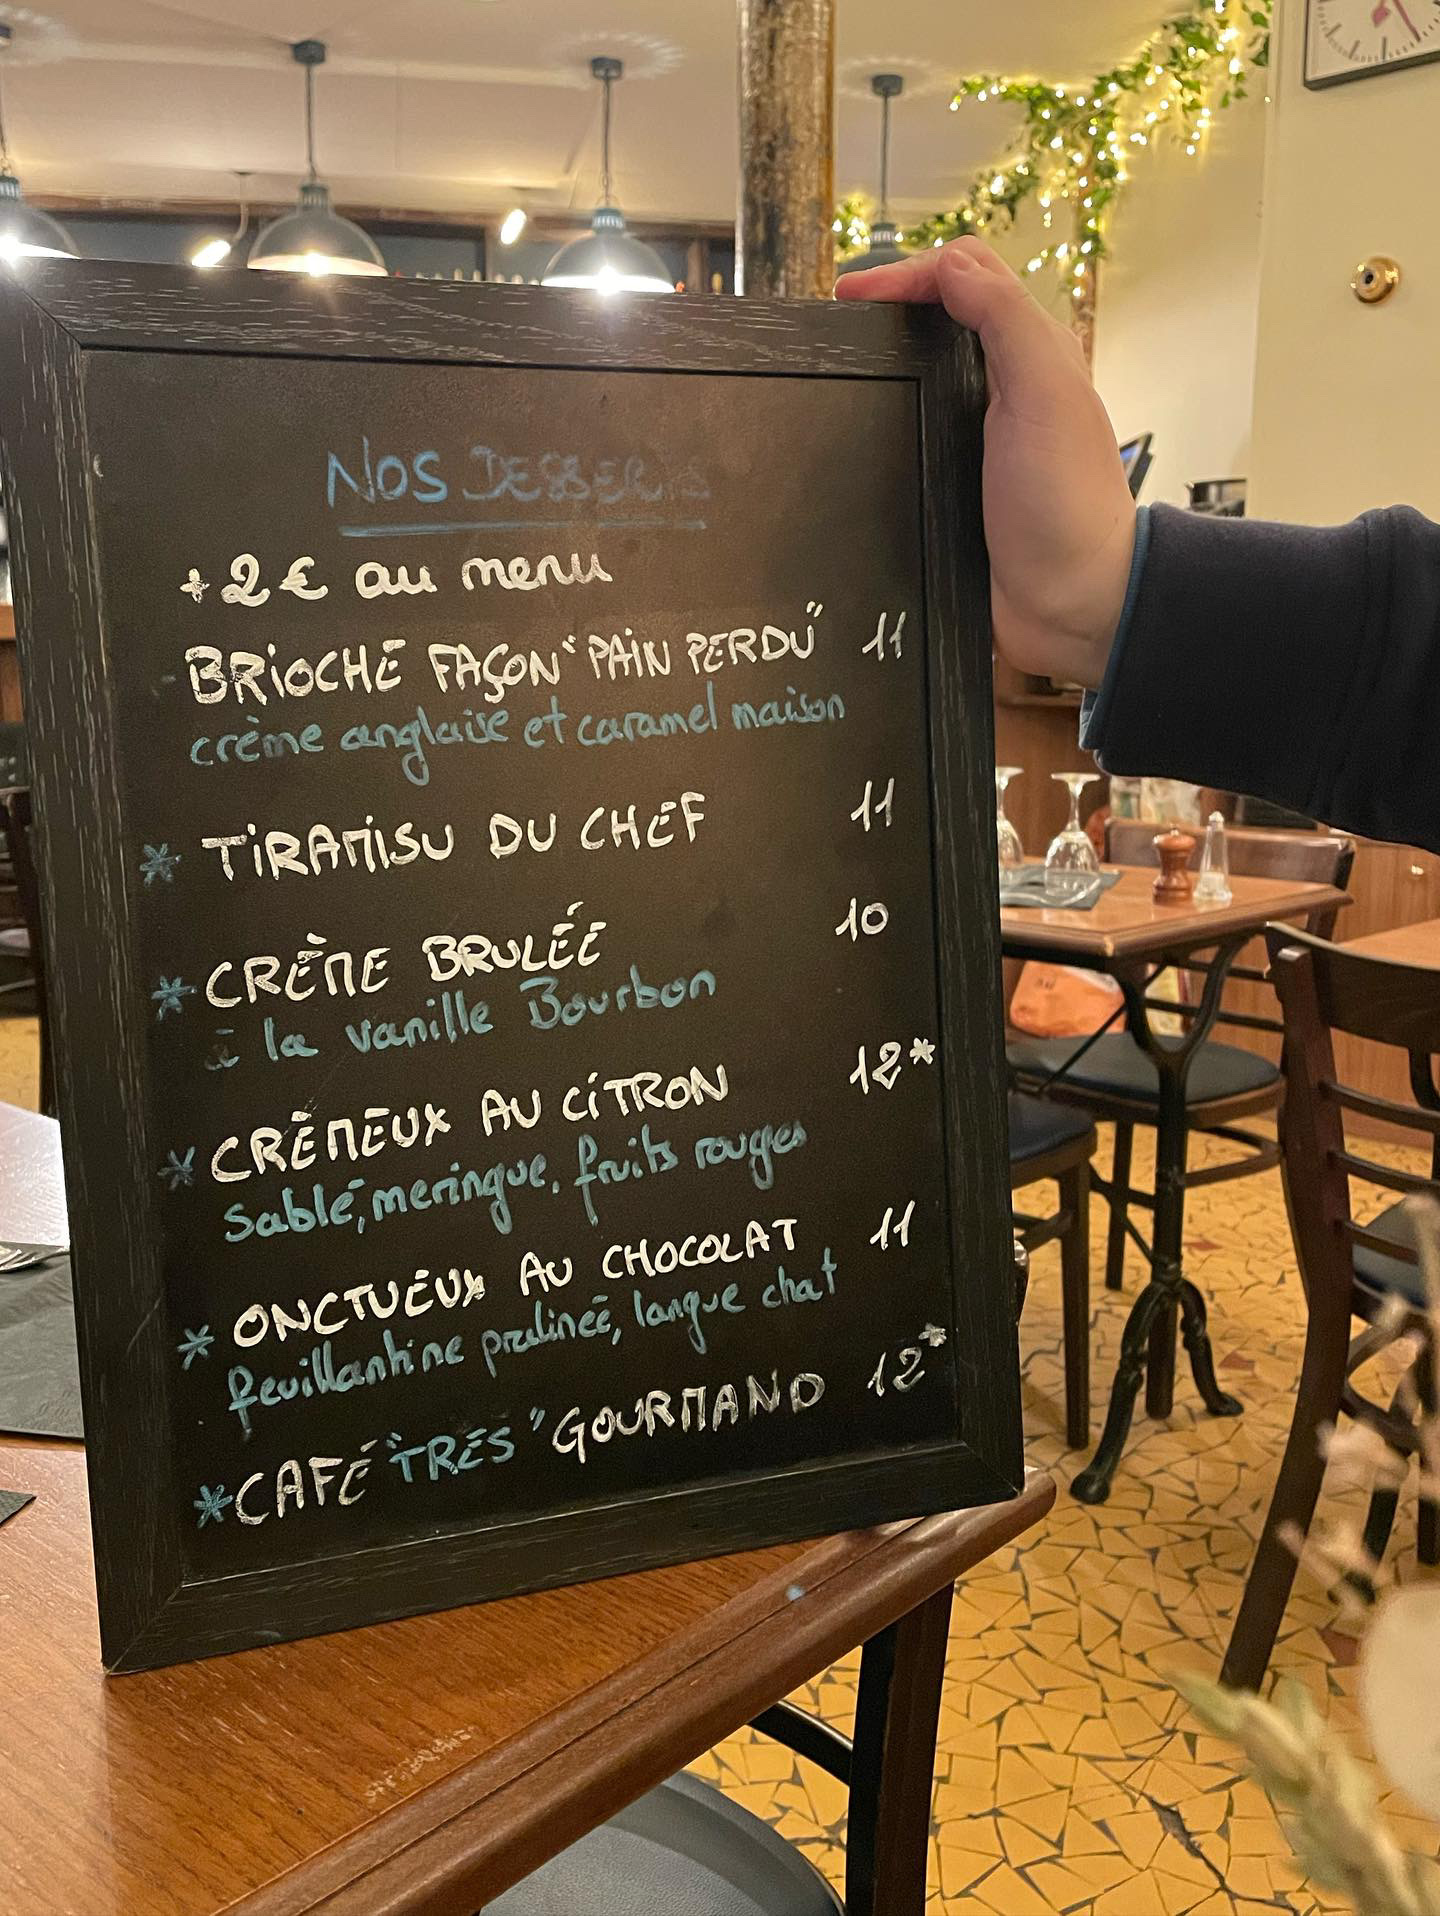 NOS DESSERTS
+2€ au menu
BRIOCHE FAÇON "PAIN PERDU" 11
crème anglaise et caramel maison
* TIRAMISU DU CHEF 11
* CRÈME BRULÉE 10
à la vanille Bourbon
* CRÈMEUX AU CITRON 12*
sablé, meringue, fruits rouges
* ONCTUEUX AU CHOCOLAT 11
feuillantine pralinée, langue chat
* CAFÉ "TRÉS" GOURMAND 12*